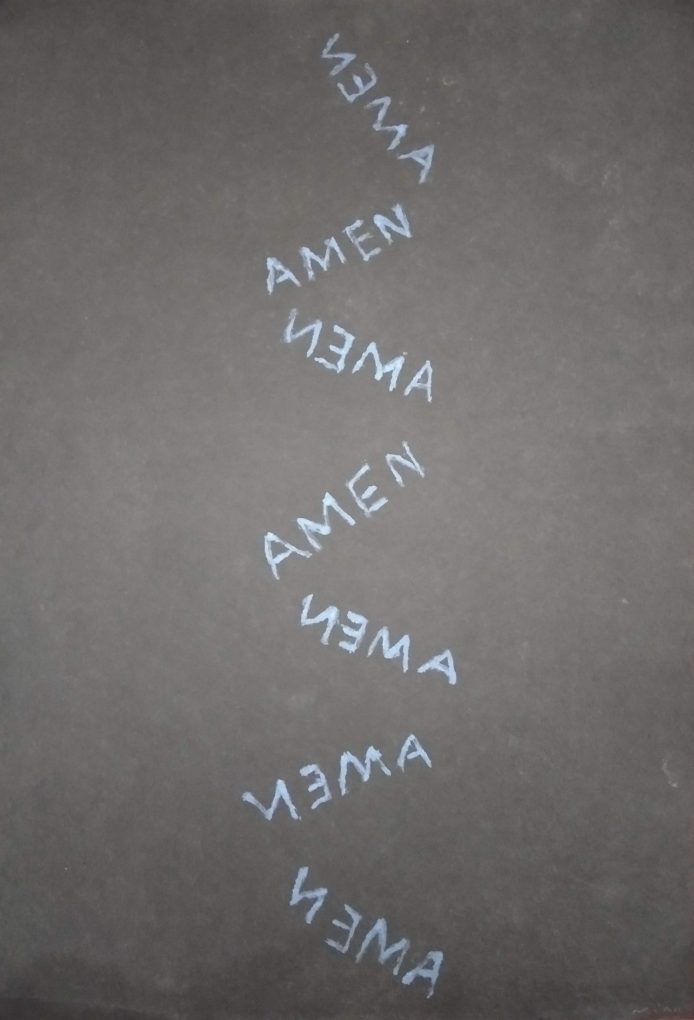 AMEN
AMEN
AMEN
AMEN
AMEN
AMEN
AMEN